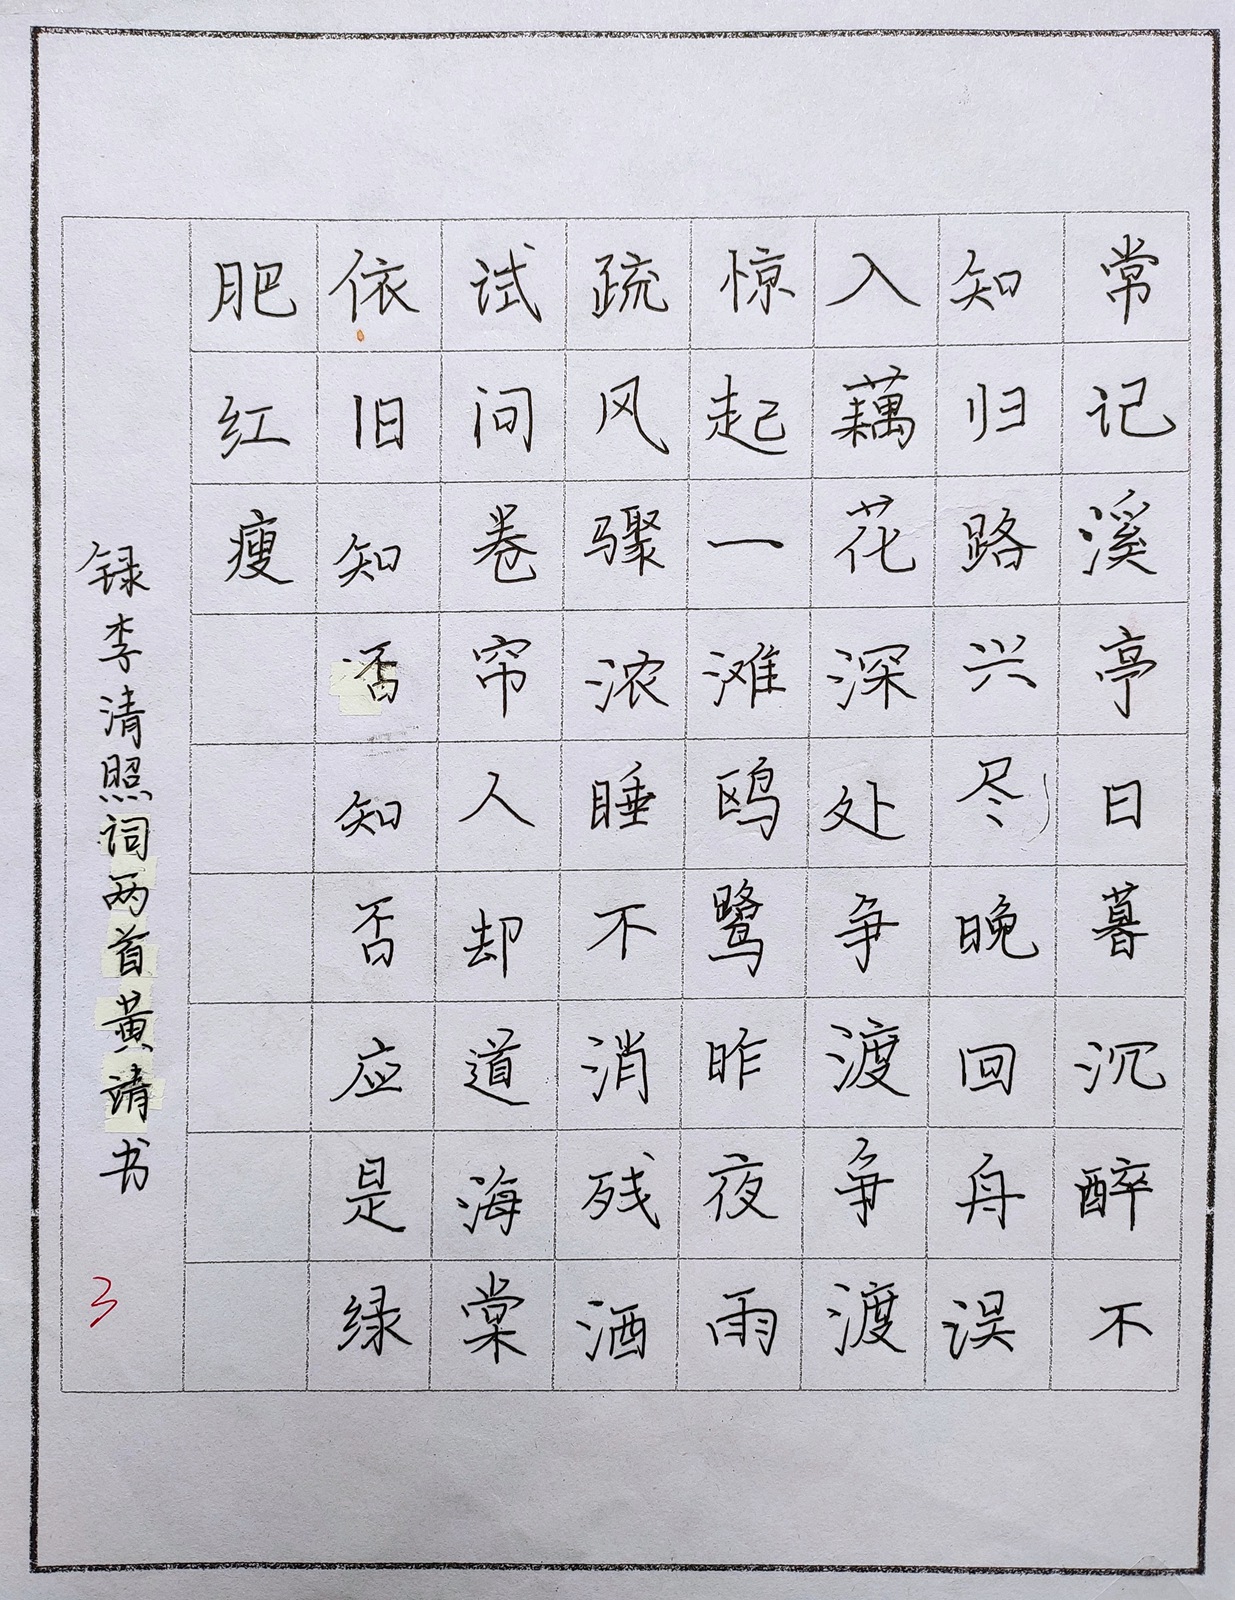 常记溪亭日暮沉醉不
知归路兴尽晚回舟误
入藕花深处争渡争渡
惊起一滩鸥鹭昨夜雨
疏风骤浓睡不消残酒
试问卷帘人却道海棠
依旧知否知否应是绿
肥红瘦
录李清照词两首黄靖书
3